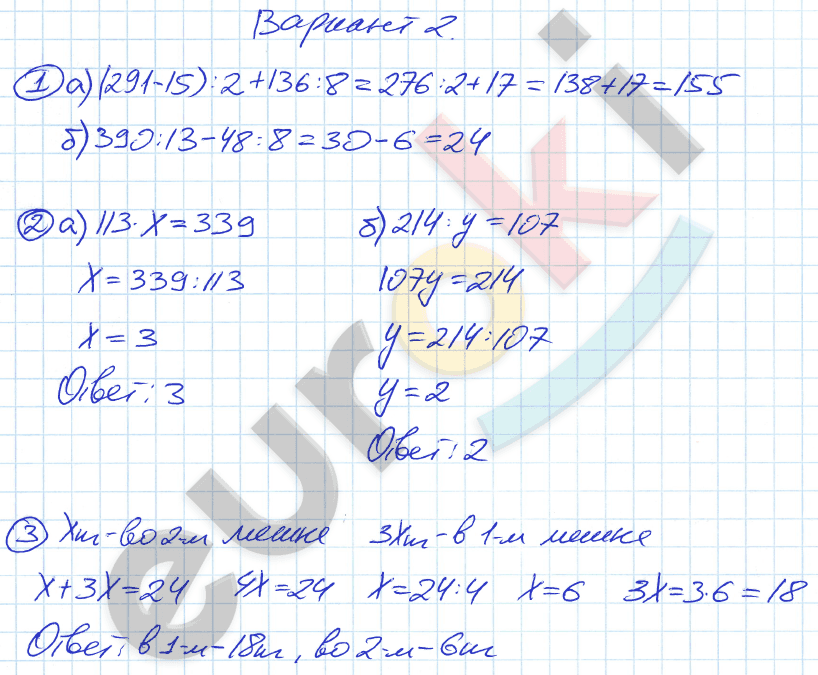 Вариант 2.
1 а) (291-15):2+136:8=276:2+17=138+17=155
б) 390:13-48:8=30-6=24
2 а) 113·x=339 б) 214:y=107
x=339:113 107y=214
x=3 y=214:107
Ответ: 3 y=2
Ответ: 2
3 xкг-во 2-м мешке 3xкг-в 1-м мешке
x+3x=24 4x=24 x=24:4 x=6 3x=3·6=18
Ответ: в 1-м-18кг, во 2-м-6кг
euroki